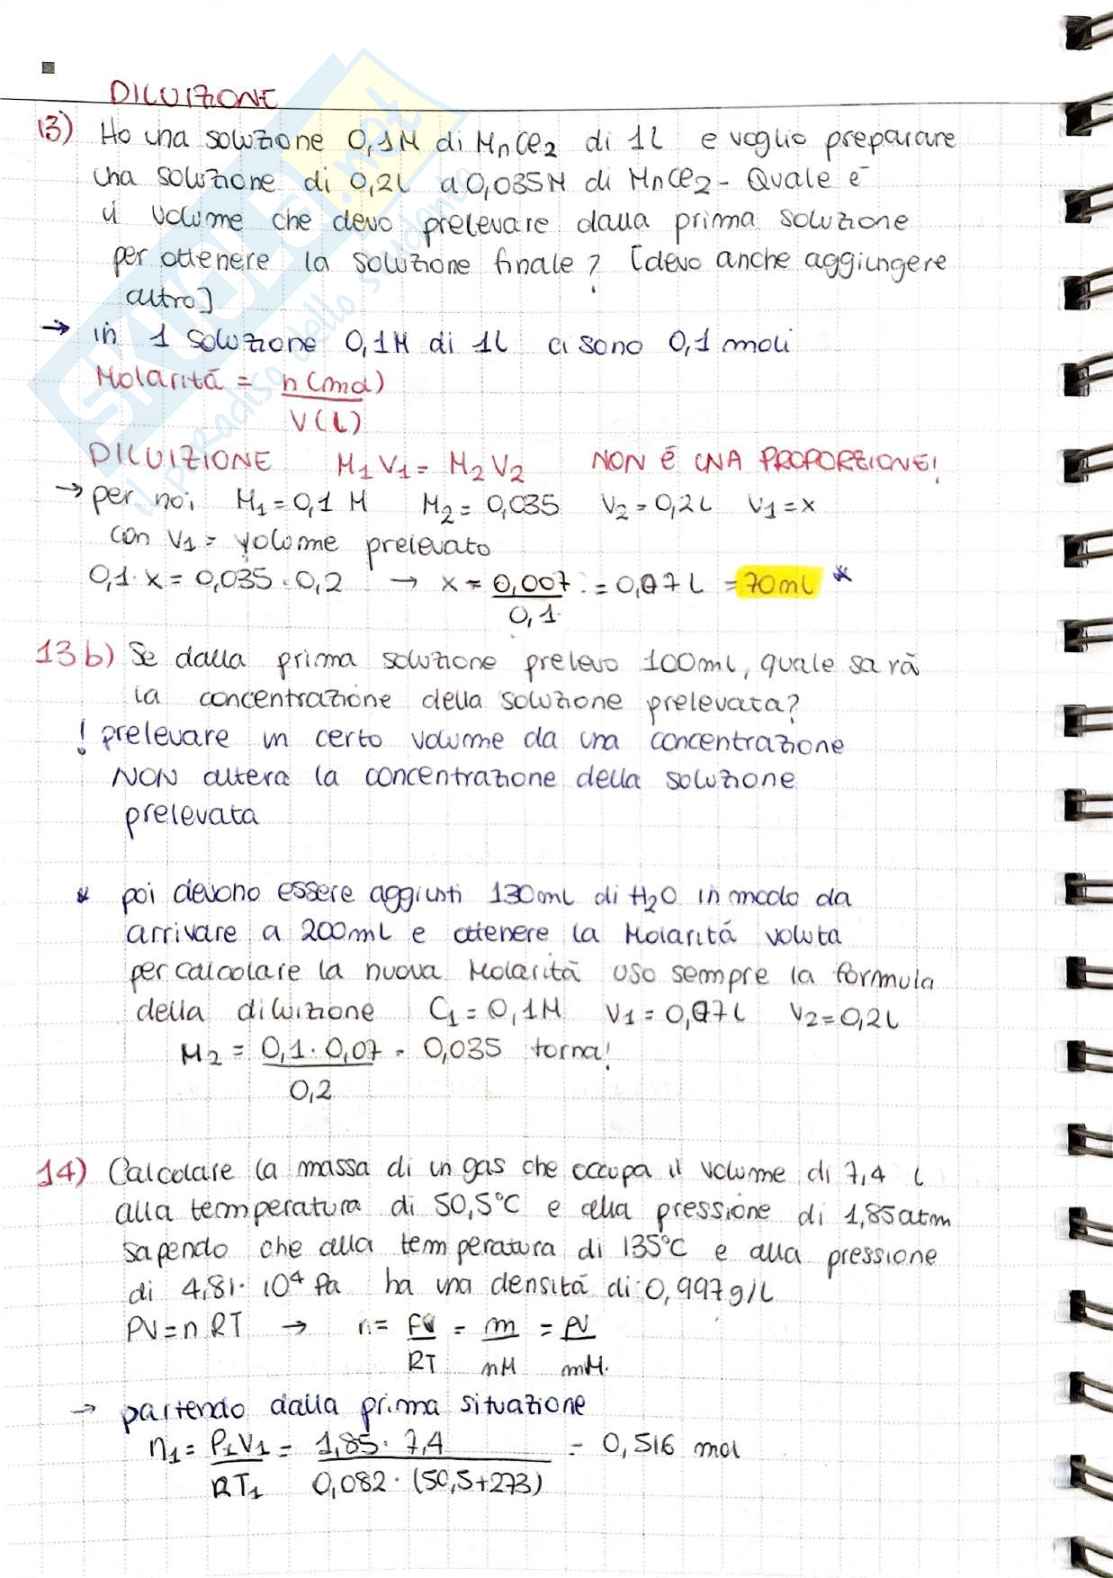 DILUIZIONE
13) Ho una soluzione 0,1M di MnCl2 di 1L e voglio preparare
una soluzione di 0,2L a 0,035M di MnCl2 - Quale è
il volume che devo prelevare dalla prima soluzione
per ottenere la soluzione finale? [devo anche aggiungere
altro]
→ in 1 soluzione 0,1M di 1L ci sono 0,1 moli
Molarità = n(mol)
V(L)
DILUIZIONE M1V1 = M2V2 NON È UNA PROPORZIONE!
→ per noi M1 = 0,1 M M2 = 0,035 V2 = 0,2L V1 = x
con V1 = volume prelevato
0,1 · x = 0,035 · 0,2 → x = 0,007 = 0,07L = 70mL *
0,1
13 b) Se dalla prima soluzione prelevo 100mL, quale sarà
la concentrazione della soluzione prelevata?
! prelevare un certo volume da una concentrazione
NON altera la concentrazione della soluzione
prelevata
* poi devono essere aggiunti 130mL di H2O in modo da
arrivare a 200mL e ottenere la Molarità voluta
per calcolare la nuova Molarità uso sempre la formula
della diluizione C1 = 0,1M V1 = 0,07L V2 = 0,2L
M2 = 0,1 · 0,07 = 0,035 torna!
0,2
14) Calcolare la massa di un gas che occupa il volume di 7,4 L
alla temperatura di 50,5°C e alla pressione di 1,85atm
sapendo che alla temperatura di 135°C e alla pressione
di 4,81 · 10⁴ Pa ha una densità di 0,997g/L
PV = nRT → n = PV = m = PV
RT mM mM.
→ partendo dalla prima situazione
n1 = P1V1 = 1,85 · 7,4 = 0,516 mol
RT1 0,082 · (50,5+273)
SKUOLA.net
il paradiso dello studente